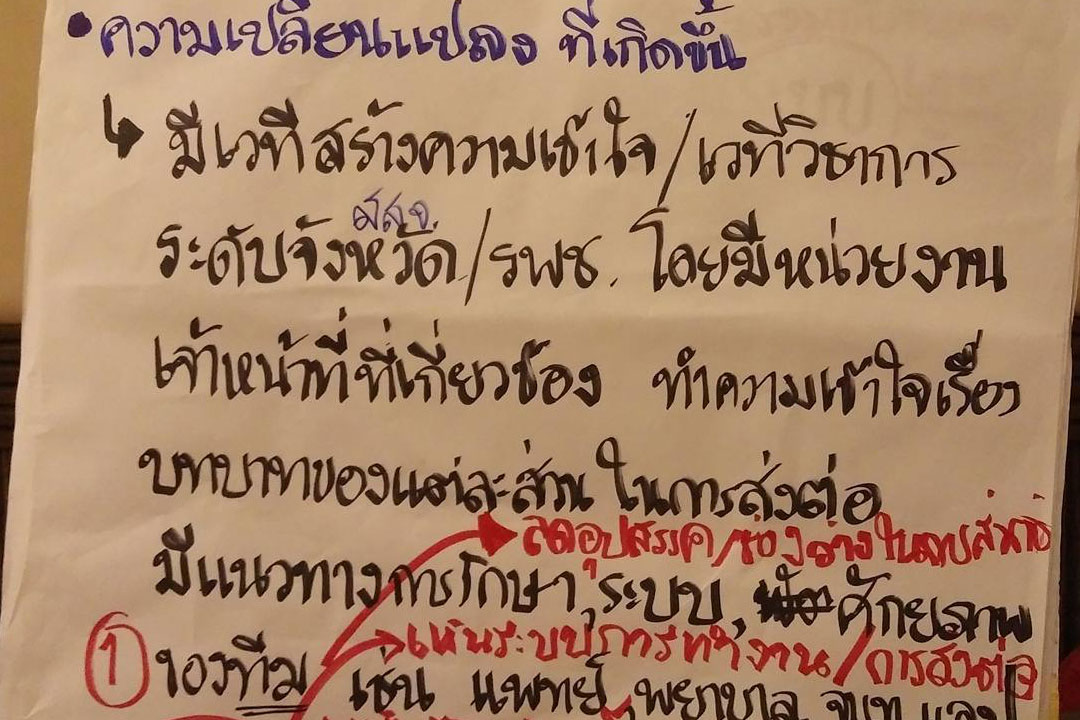 • ความเปลี่ยนแปลง ที่เกิดขึ้น
↳ มีเวทีสร้างความเข้าใจ/เวทีวิชาการ
สสจ.
ระดับจังหวัด/รพช. โดยมีหน่วยงาน
เจ้าหน้าที่ที่เกี่ยวข้อง ทำความเข้าใจเรื่อง
บทบาทของแต่ละส่วน ในการส่งต่อ
ลดอุปสรรค/ช่องว่างในการส่งต่อ
มีแนวทางการรักษา, ระบบ, ศักยภาพ
เห็นระบบการทำงาน/การส่งต่อ
① ของทีม เช่น แพทย์, พยาบาล